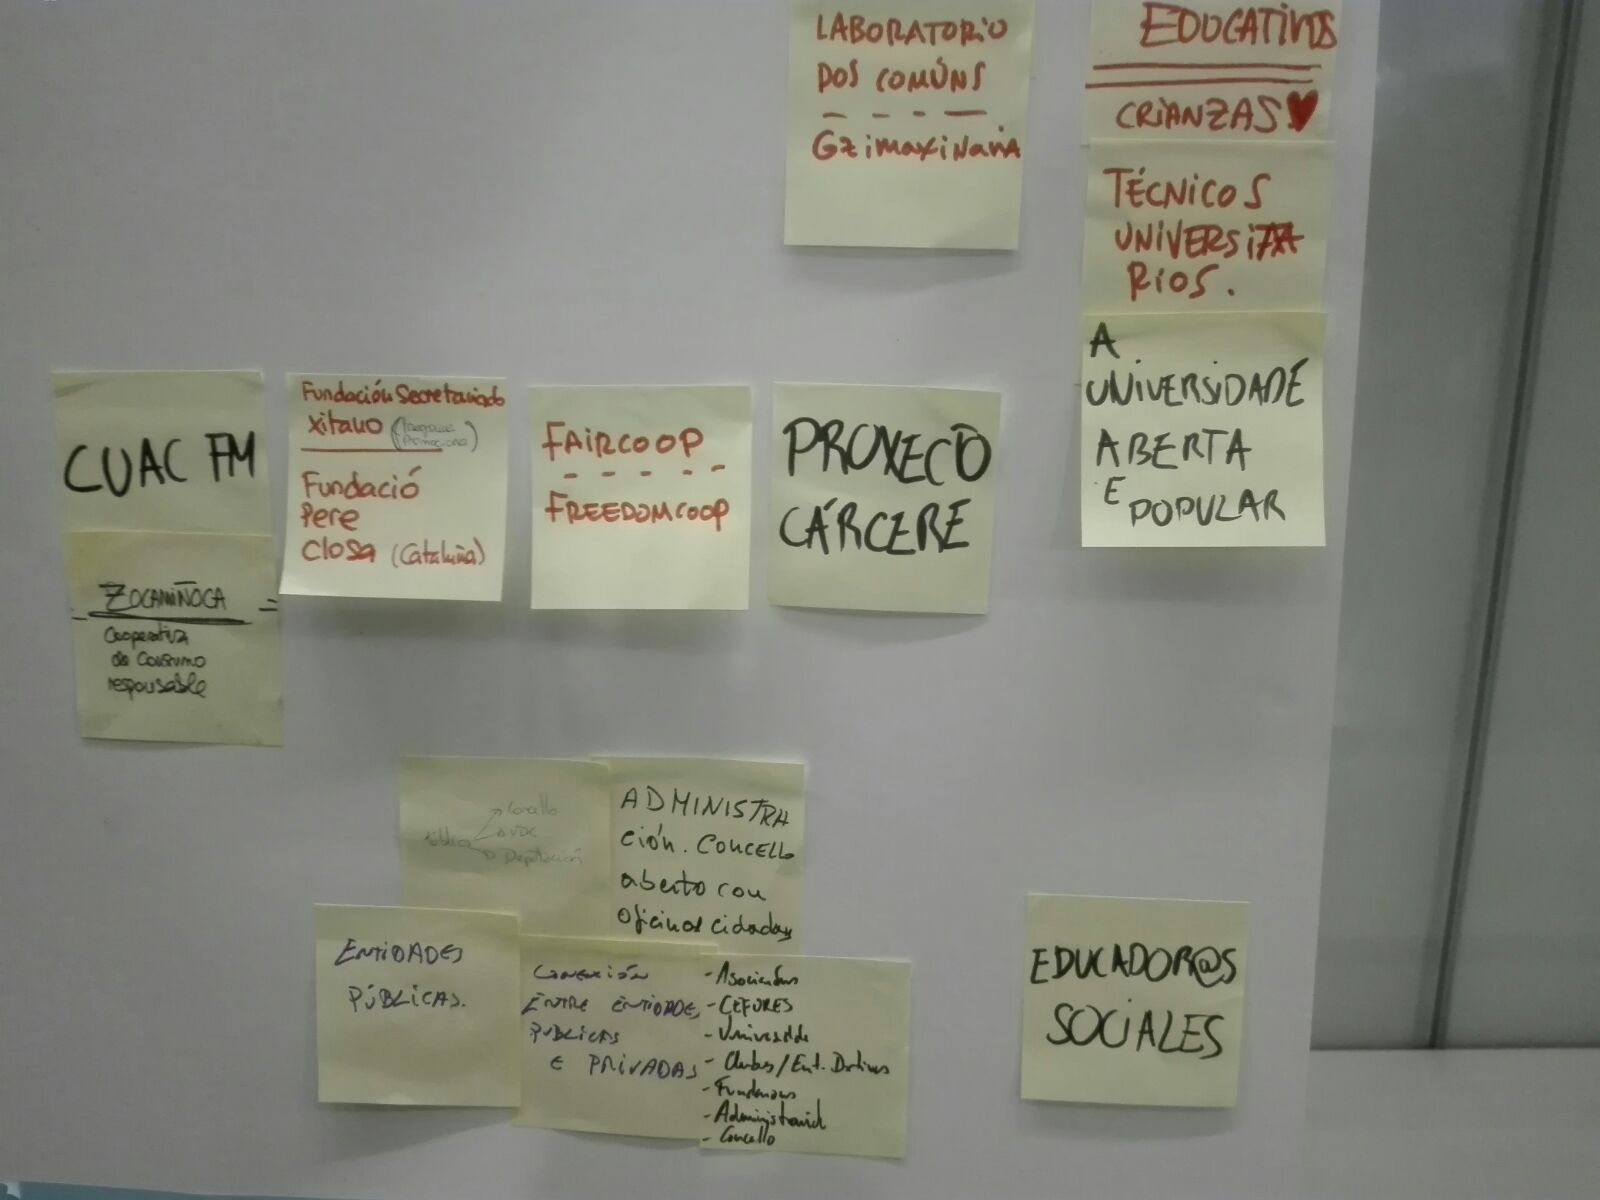 LABORATORIO
DOS COMÚNS
Gzimaxinaria
EDUCATIVOS
CRIANZAS
TÉCNICOS
UNIVERSITA
RIOS.
A
UNIVERSIDADE
ABERTA
E POPULAR
CUAC FM
ZOCAMIÑOCA
Cooperativa
de Consumo
responsable
Fundación Secretariado
Xitano
Fundació
Pere
Closa (Cataluña)
FAIRCOOP
FREEDOMCOOP
PROXECTO
CÁRCERE
Concello
UDC
Deputación
ADMINISTRA
ción. Concello
aberto con
oficinas cidadás
ENTIDADES
PÚBLICAS.
CONEXIÓN
ENTRE ENTIDADES
PUBLICAS
E PRIVADAS
- CEFORES
- Universidade
- Clubes / Ent.
- Concello
EDUCADOR@S
SOCIALES